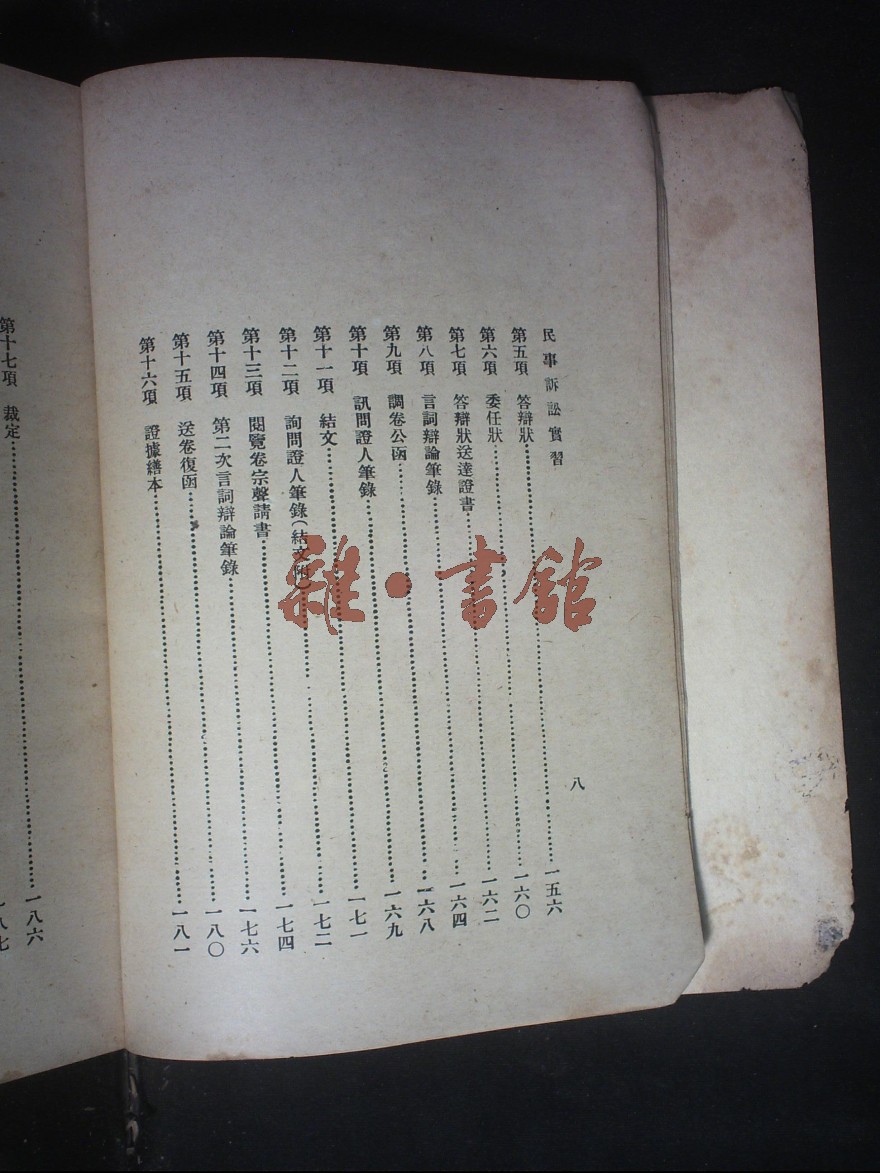 民事訴訟實習
八
第五項 答辯狀……一五六
第六項 委任狀……一六〇
第七項 答辯狀送達證書……一六二
第八項 言詞辯論筆錄……一六四
第九項 調卷公函……一六八
第十項 訊問證人筆錄……一六九
第十一項 結文……一七一
第十二項 詢問證人筆錄(結文附)……一七二
第十三項 閱覽卷宗聲請書……一七四
第十四項 第二次言詞辯論筆錄……一七六
第十五項 送卷復函……一八〇
第十六項 證據繕本……一八一
第十七項 裁定……一八六
雜·書館